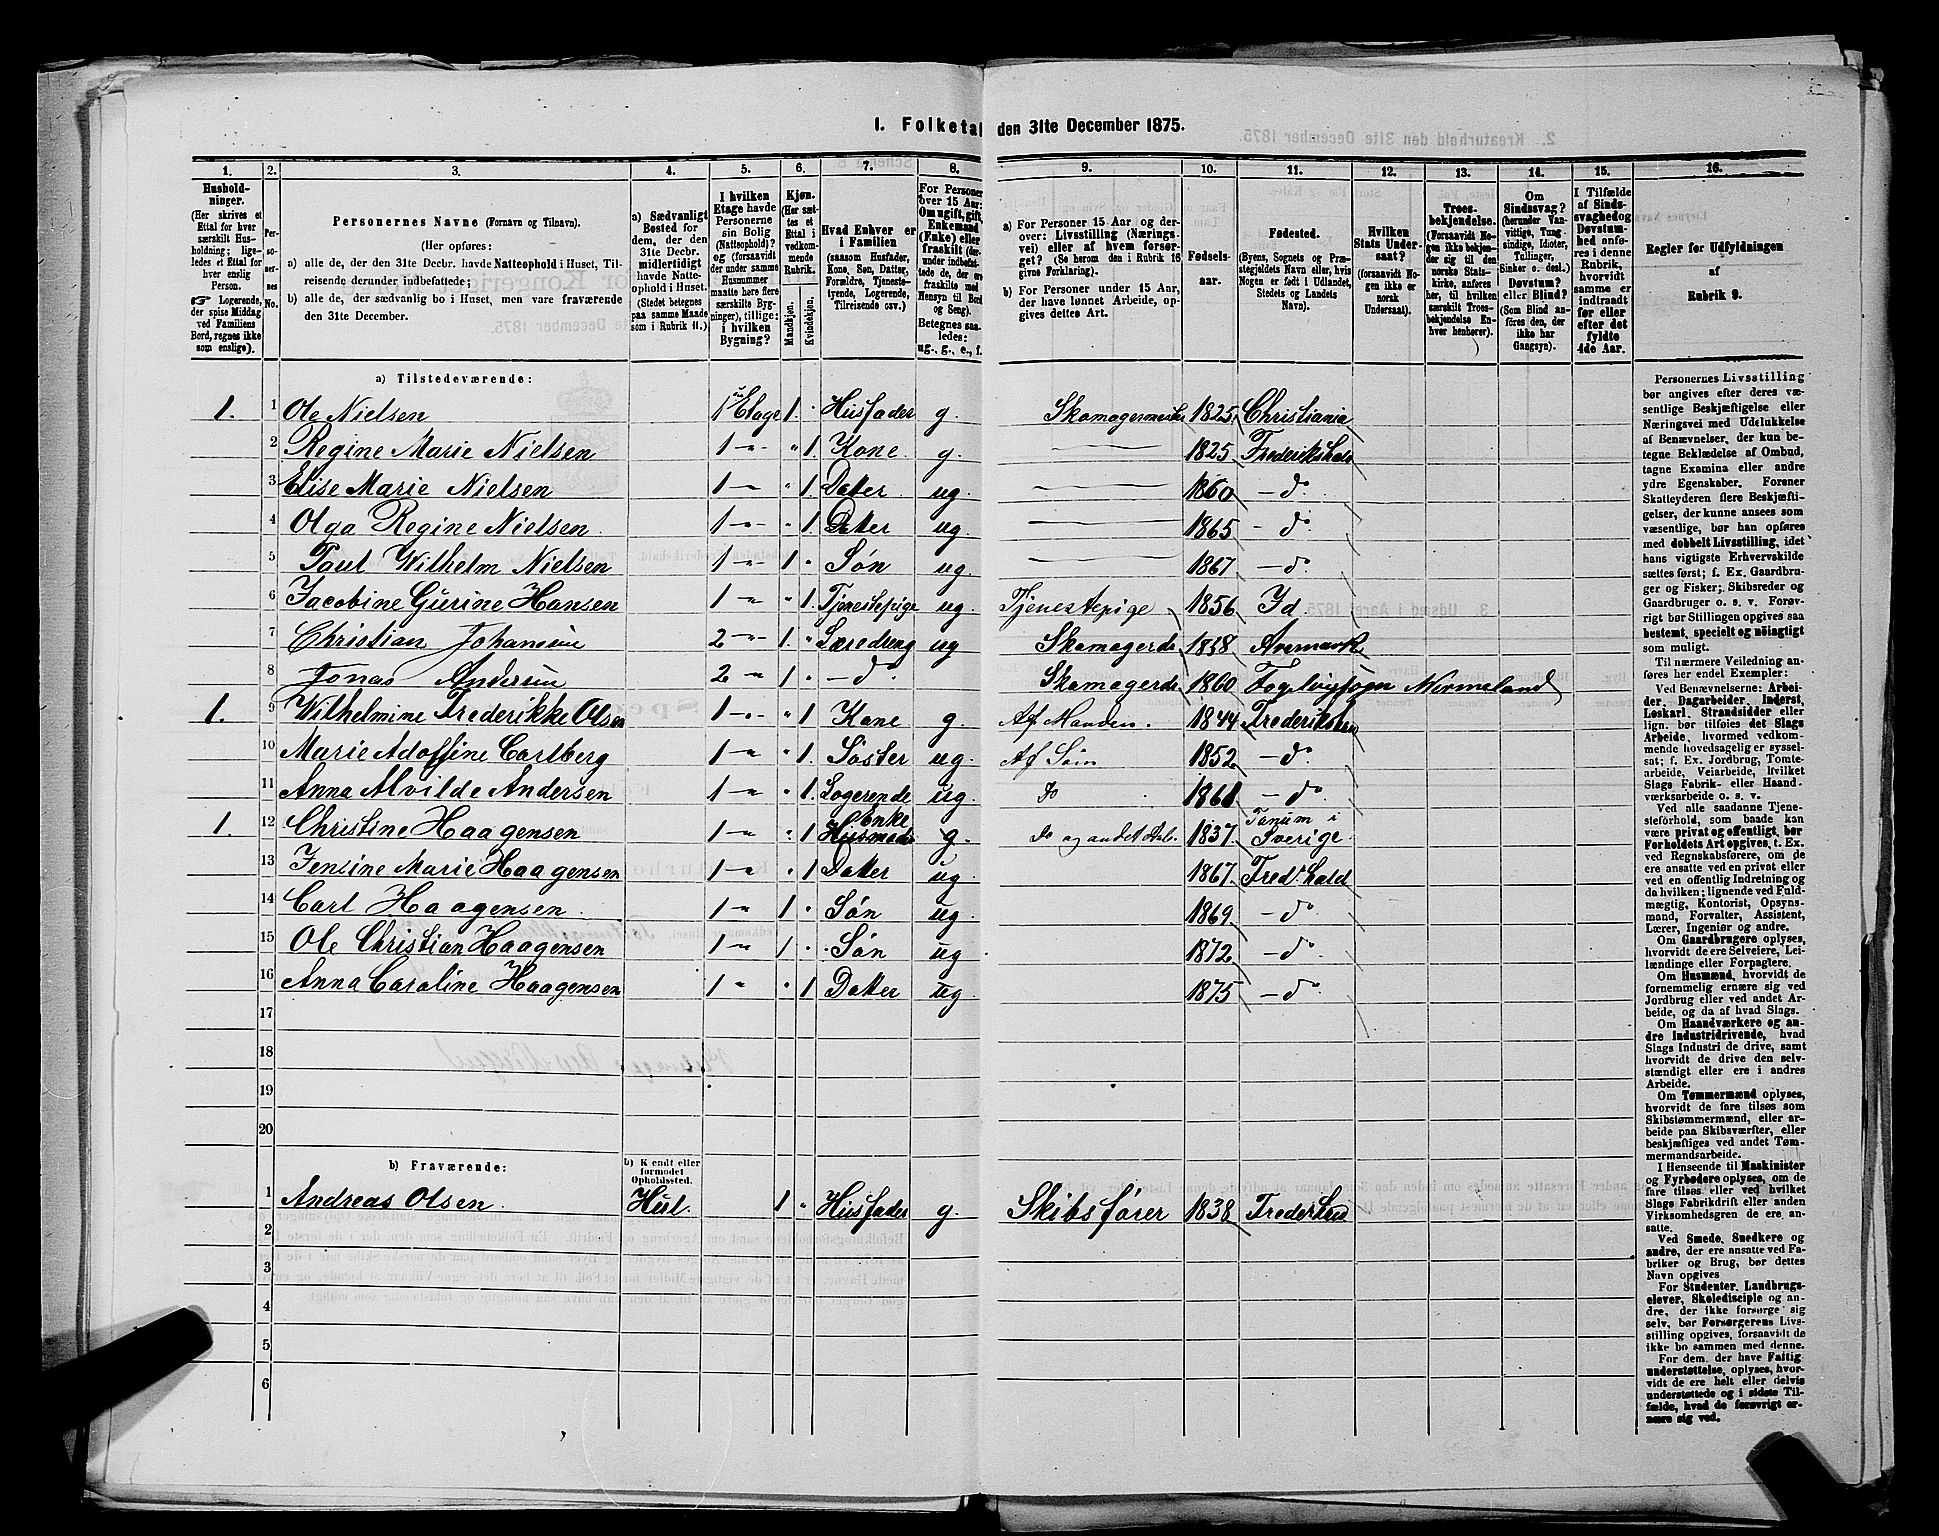 1. Folketal den 31te December 1875.
1. 2. 3. 4. 5. 6. 7. 8. 9. 10. 11. 12. 13. 14. 15. 16.
Husholdninger. (Her skrives et Ettal for hver særskilt Husholdning; ligeledes et Ettal for hver enslig Person. Logerende, der spise Middag ved Familiens Bord, regnes ikke som enslige).
Personernes No.
Personernes Navne (Fornavn og Tilnavn).
(Her opføres:
a) alle de, der den 31te Decbr. havde Natteophold i Huset, Tilreisende derunder indbefattede;
b) alle de, der sædvanlig bo i Huset, men vare fraværende den 31te December.
a) Sædvanligt Bosted for dem, der den 31te Decbr. midlertidigt havde Natteophold i Huset. (Stedet betegnes paa samme Maade som i Rubrik 11.)
I hvilken Etage havde Personerne sin Bolig (Natteophold)? og (forsaavidt der under samme Husnummer maatte høre flere særskilte Bygninger), tillige: i hvilken Bygning?
Kjøn. (Her sættes et Ettal i vedkommende Rubrik. Mandkjøn. Kvindekjøn.
Hvad Enhver er i Familien (saasom Husfader, Kone, Søn, Datter, Forældre, Tjenestetyende, Logerende, Tilreisende osv.)
For Personer over 15 Aar: Om ugift, gift, Enkemand (Enke) eller fraskilt Betegnes saaledes: ug., g., e., f.
a) For Personer 15 Aar og derover: Livsstilling (Næringsvei) eller af hvem forsørget? (Se herom den i Rubrik 16 givne Forklaring).
b) For Personer under 15 Aar, der have lønnet Arbeide, opgives dettes Art.
Fødselsaar.
Fødested. (Byens, Sognets og Præstegjeldets Navn eller, hvis Nogen er født i Udlandet, Stedets og Landets Navn).
Hvilken Stats Undersaat? (forsaavidt Nogen ikke er norsk Undersaat).
Troesbekjendelse. (Forsaavidt Nogen ikke bekjender sig til den norske Statskirke, anføres her, til hvilken særskilt Troesbekjendelse Enhver henhører).
Om Sindssvag? (herunder Vanvittige, Tungsindige, Idioter, Tullinger, Sinker o. desl.) Døvstum? eller Blind? (Som Blind anføres den, der ikke har Gangsyn).
I Tilfælde af Sindssvaghed og Døvstumhed anføres i denne Rubrik, hvorvidt samme er indtraadt før eller efter det fyldte 4de Aar.
Regler for Udfyldningen af Rubrik 9.
a) Tilstedeværende:
1. 1 Ole Nielsen 1ste Etage 1. Husfader g. Skomagermester 1825 Christiania
2 Regine Marie Nielsen 1 -"- " 1. Kone g. 1825 Frederikshald
3 Elise Marie Nielsen 1 -"- " 1. Datter ug. 1860 - do
4 Olga Regine Nielsen 1 -"- " 1. Datter ug. 1865 - do
5 Paul Wilhelm Nielsen 1 -"- 1 " Søn ug. 1867 - do
6 Jacobine Gurine Hansen 1 -"- " 1. Tjenestepige ug. Tjenestepige 1856 Id
7 Christian Johansen 2 -"- 1. " Læredreng ug Skomagerdr. 1858 Aremark
8 Jonas Andersen 2 -"- 1 " - do ug Skomagerdr. 1860 Fogelvigsogn Vermeland
1. 9 Wilhelmine Frederikke Olsen 1 -"- " 1. Kone g. Af Manden. 1844 Frederikshald
10 Marie Adolfine Carlberg 1 -"- " 1. Søster ug. Af Søm 1852 - do
11 Anna Alvilde Andersen 1 -"- " 1. Logerende ug. Do 1861 - do
1. 12 Christine Haagensen 1 -"- " 1. Enke Husmoder g. do og andet Arb. 1837 Tanum i Sverige.
13 Jensine Marie Haagensen 1 -"- " 1 Datter ug. 1867 Fredr.hald
14 Carl Haagensen 1 -"- 1 " Søn ug. 1869 - do
15 Ole Christian Haagensen 1 -"- 1 " Søn ug 1872 - do
16 Anna Caroline Haagensen 1 " " 1 Datter ug. 1875 - do
17
18
19
20
b) Fraværende:
b) Kjendt eller formodet Opholdssted.
1 Andreas Olsen Hul. 1 " Husfader g. Skibsfører 1838 Frederikshald
2
3
4
5
6
Personernes Livsstilling bør angives efter deres væsentlige Beskjæftigelse eller Næringsvei med Udelukkelse af Benævnelser, der kun betegne Beklædelse af Ombud, tagne Examina eller andre ydre Egenskaber. Forener Skatteyderen flere Beskjæftigelser, der kunne ansees som væsentlige, bør han opføres med dobbelt Livsstilling, idet hans vigtigste Erhvervskilde sættes først; f. Ex. Gaardbruger og Fisker; Skibsreder og Gaardbruger o. s. v. Forøvrigt bør Stillingen opgives saa bestemt, specielt og nøiagtigt som muligt.
Til nærmere Veiledning anføres her endel Exempler:
Ved Benævnelserne: Arbeider, Dagarbeider, Inderst, Løskarl, Strandsidder eller lign. bør tilføies det Slags Arbeide, hvormed vedkommende hovedsagelig er sysselsat; f. Ex. Jordbrug, Tomtearbeide, Veiarbeide, hvilket Slags Fabrik- eller Haandværksarbeide o. s. v.
Ved alle saadanne Tjenesteforhold, som baade kan være privat og offentligt, bør Forholdets Art opgives, t. Ex. ved Regnskabsførere, om de ere ansatte ved en privat eller ved en offentlig Indretning og da hvilken; lignende ved Fuldmægtig, Kontorist, Opsynsmand, Forvalter, Assistent, Lærer, Ingeniør og andre.
Om Gaardbrugere oplyses, hvorvidt de ere Selveiere, Leilændinge eller Forpagtere.
Om Husmænd, hvorvidt de fornemmelig ernære sig ved Jordbrug eller ved andet Arbeide, og da af hvad Slags.
Om Haandværkere og andre Industridrivende, hvad Slags Industri de drive, samt hvorvidt de drive den selvstændigt eller ere i andres Arbeide.
Om Tømmermænd oplyses, hvorvidt de fare tilsøs som Skibstømmermænd, eller arbeide paa Skibsværfter, eller beskjæftiges ved andet Tømmermandsarbeide.
I Henseende til Maskinister og Fyrbødere oplyses, om de fare tilsøs eller ved hvilket Slags Fabrikdrift eller anden Virksomhedsgren de ere ansatte.
Ved Smede, Snedkere og andre, der ere ansatte ved Fabriker og Brug, bør dettes Navn opgives
For Studenter, Landbrugselever, Skoledisciple og andre, der ikke forsørge sig selv, bør Forsørgerens Livsstilling opgives, forsaavidt de ikke bo sammen med denne.
For dem, der have Fattigunderstøttelse, oplyses, hvorvidt de ere helt eller delvis understøttede og i sidste Tilfælde, hvad de forøvrigt ernære sig ved.